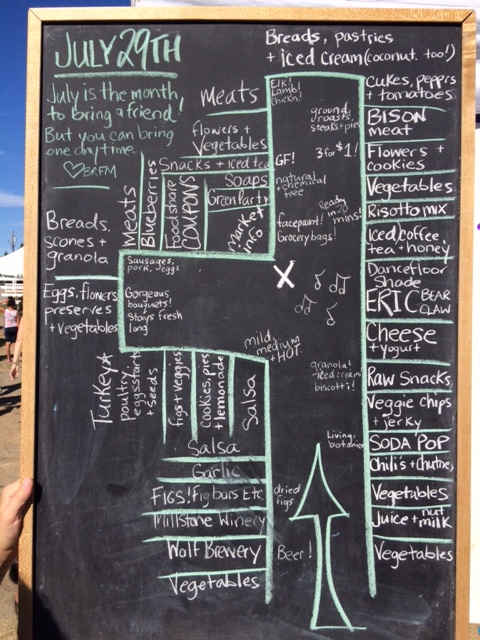 JULY 29TH
July is the month
to bring a friend!
But you can bring
one anytime.
♡BRFM
Breads, pastries
+ iced cream (coconut. too!)
Meats
Flowers +
Vegetables
Snacks + Iced tea
Soaps
Green Party
Market
info
COUPONS
Foodshare
Blueberries
Meats
Breads,
scones +
granola
Eggs, flowers
preserves
+ vegetables
Turkey☆
poultry,
eggs, starts
+ seeds
figs + veggies
Cookies, pies
+ lemonade
Salsa
Salsa
Garlic
FIGS! Fig bars Etc
Millstone Winery
Wolf Brewery
Vegetables
Elk!
Lamb!
chickn!
ground,
roasts,
steaks + pies
GF!
3 for $1!
natural +
chemical
free
ready
in 20
mins!
facepaint!
Grocery bags!
Sausages,
pork, eggs
Gorgeous
bouquets!
Stays fresh
long
X
mild,
medium
+ HOT
granola!
iced cream
biscotti!
Living
dried
figs
Beer!
Cukes, peppers
+ tomatoes
BISON
meat
Flowers +
cookies
Vegetables
Risotto mix
Iced coffee,
tea + honey
Dancefloor
Shade
ERIC BEAR
CLAW
Cheese
+ yogurt +
Raw Snacks
Veggie Chips
+ jerky
SODA POP
Chili's + Chutney
Vegetables
Juice + nut
milk
Vegetables